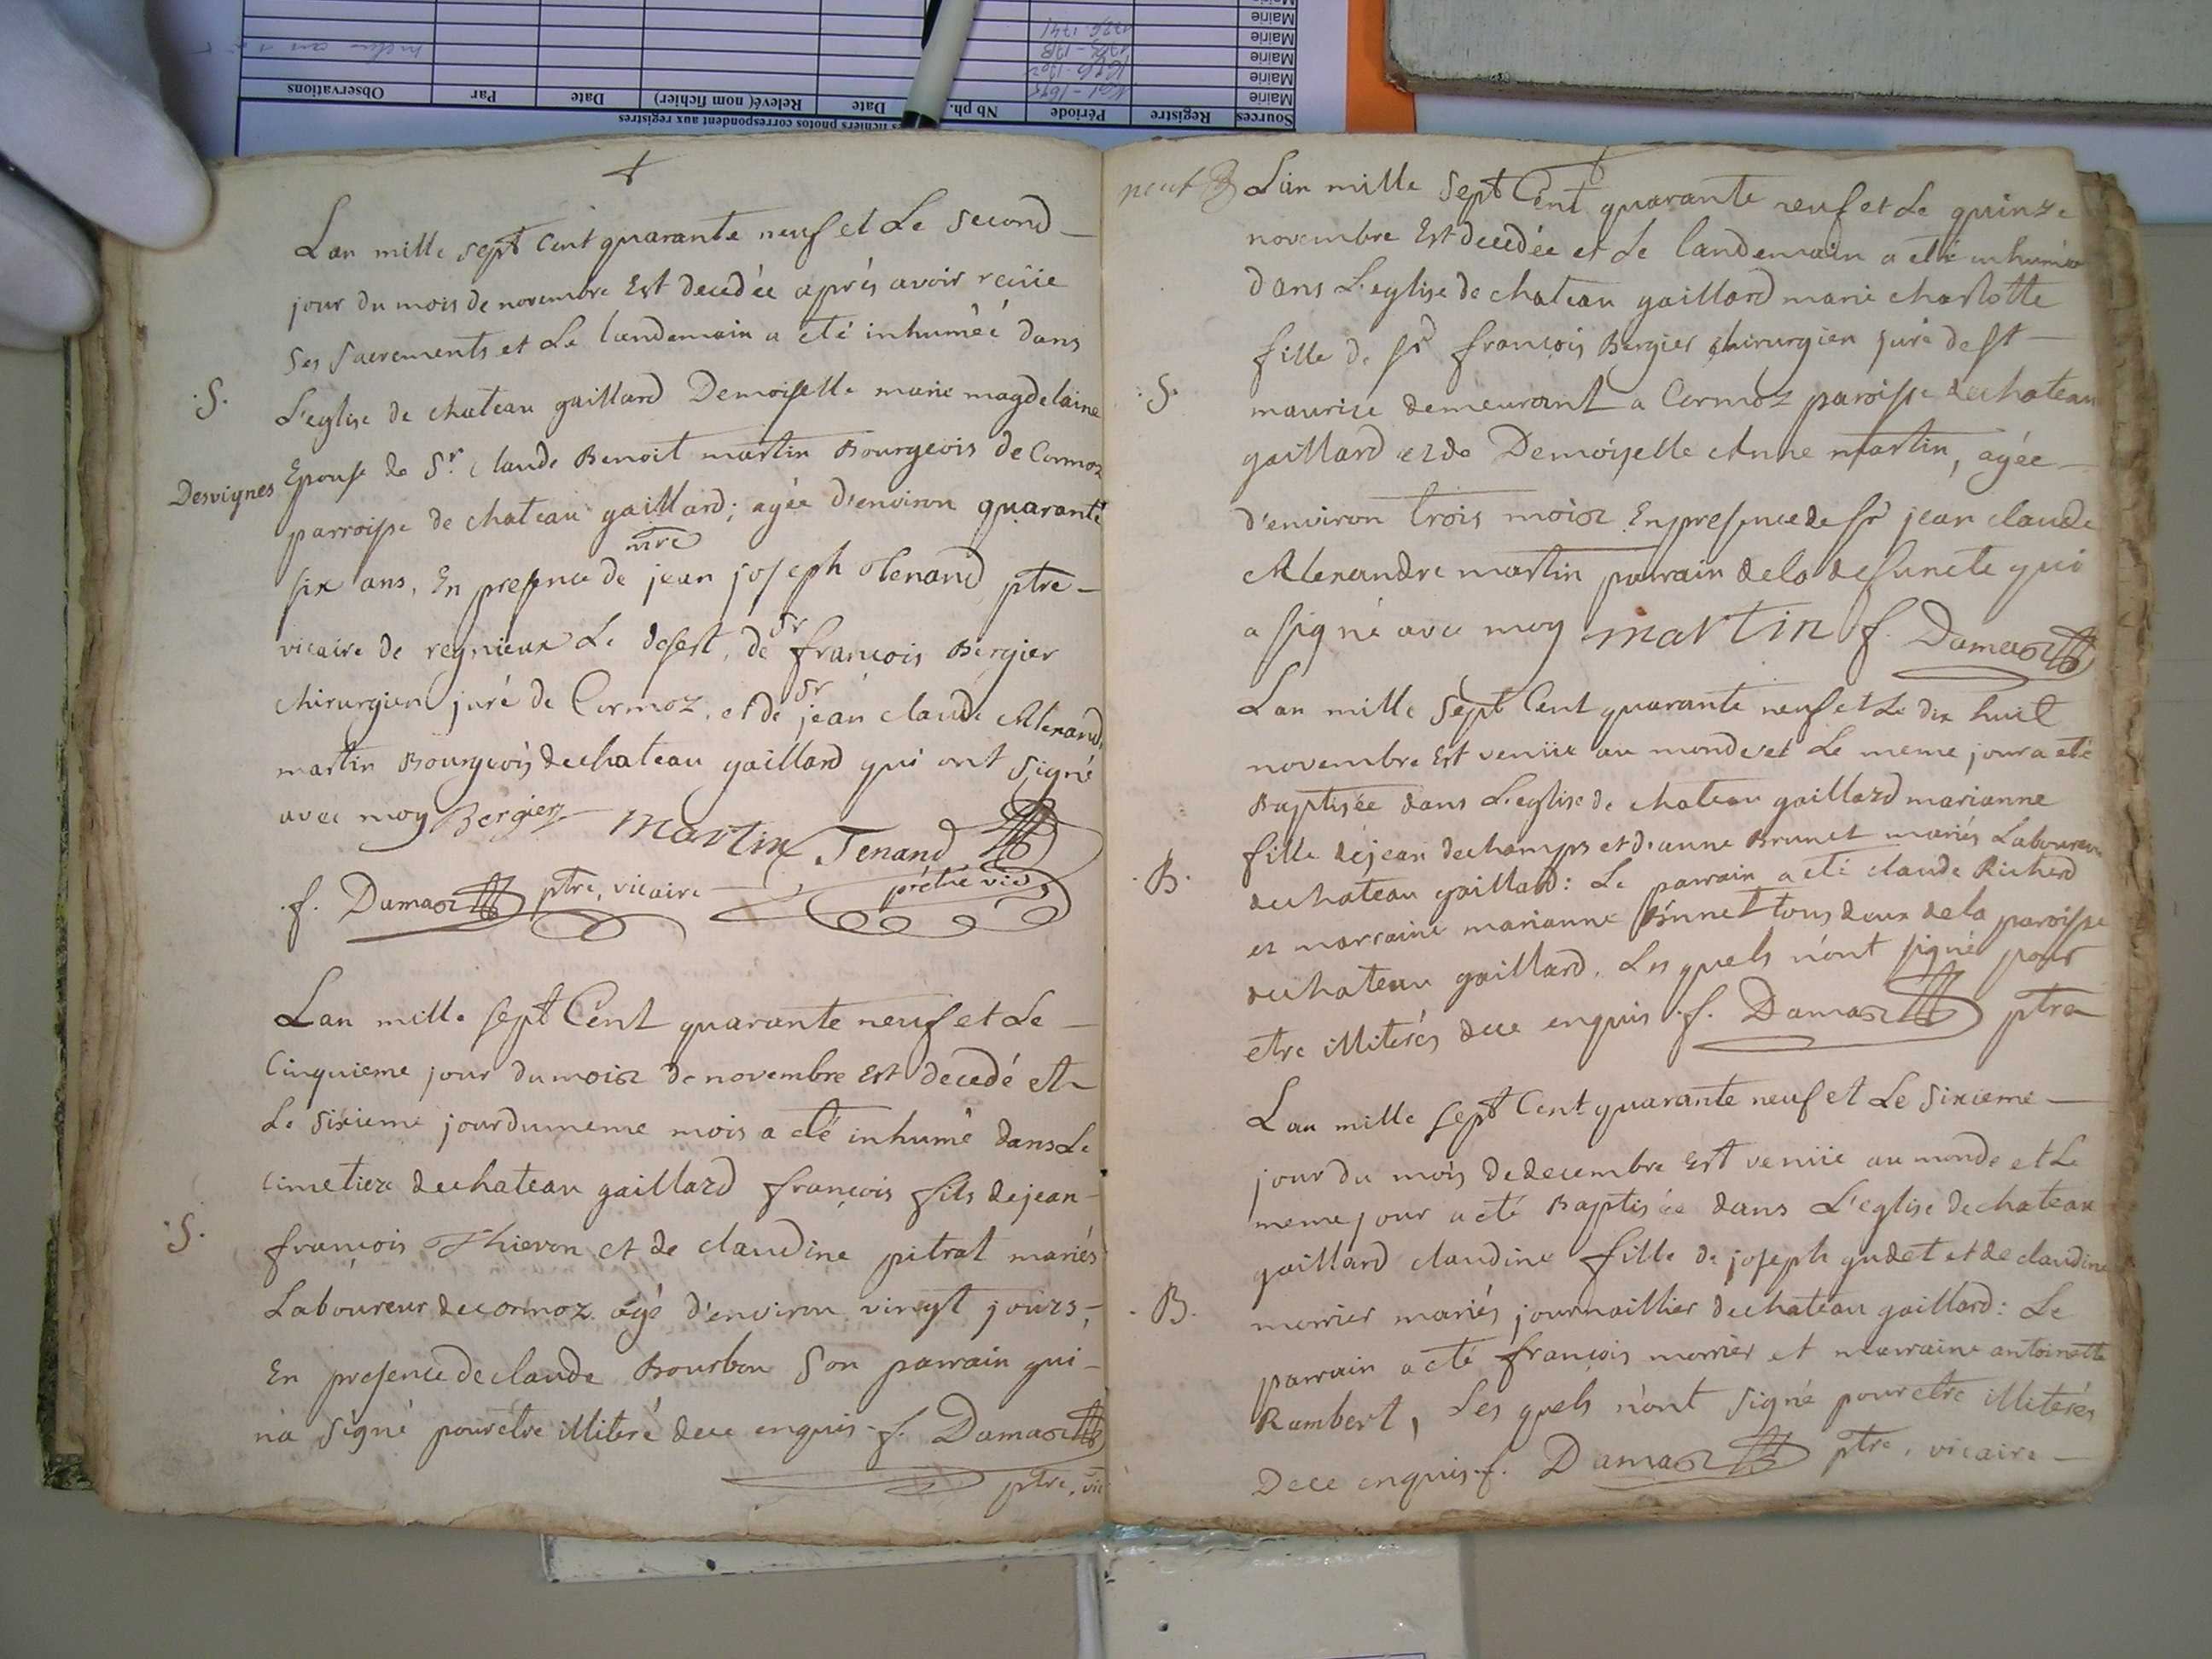 Sources Registre Période Nb ph. Date Relevé (nom fichier) Date Par Observations
Mairie
Mairie
Mairie
Mairie
Mairie
Lan mille sept Cent quarante neuf et Le second
jour du mois de novembre Est decedée aprés avoir reciie
ses sacrements et Le landemain a eté inhumêé dans
S.
L'eglise de chateau gaillard Demoiselle marie magdelaine
Desvignes Epouse de Sr. Claude Benoit martin Bourgeois de Cormoz
parroisse de chateau gaillard; agée d'environ quarante
six ans, En presence de jean joseph tenand ptre
vicaire de regnieux Le desert, de Sr françois Bergier
chirurgien juré de Cormoz, et de Sr jean claude Alexand
martin Bourgeois de chateau gaillard qui ont signé
avec moy Bergier martin Tenand
f. Damas ptre, vicaire prêtre vic
Lan mille sept Cent quarante neuf et Le
Cinquieme jour du mois de novembre Est decedé et
Le sixieme jour du meme mois a eté inhumé dans Le
cimetiere de chateau gaillard françois fils de jean
S.
françois Thievon et de claudine pitrat mariés
Laboureur de cormoz agé d'environ vingt jours,
En presence de claude Bourbon son parrain qui
n'a signé pour etre illiteré de ce enquis f. Damas
ptre, vic
Lan mille sept Cent quarante neuf et Le quinze
novembre Est decedée et Le landemain a eté inhumée
dans L'eglise de chateau gaillard marie charlotte
fille de Sr françois Bergier chirurgien juré de St
S.
maurice demeurant a Cormoz paroisse de chateau
gaillard et de Demoiselle Anne martin, agée
d'environ trois mois En presence de Sr jean claude
Alexandre martin parrain de la defuncte qui
a signé avec moy martin f. Damas
Lan mille sept Cent quarante neuf et Le dix huit
novembre Est veniie au monde et Le meme jour a eté
Baptisée dans L'eglise de chateau gaillard marianne
fille de jean dechamps et d'anne Brunet mariés Laboureur
B.
de chateau gaillard: Le parrain a eté claude Richerd
et marraine marianne tous deux de la paroisse
de chateau gaillard, Les quels n'ont signé pour
etre illiterés de ce enquis f. Damas ptre
Lan mille sept Cent quarante neuf et Le sixieme
jour du mois de decembre Est veniie au monde et Le
meme jour a eté Baptisée dans L'eglise de chateau
gaillard claudine fille de joseph gudet et de claudine
B.
morrier mariés journaillier de chateau gaillard: Le
parrain a eté françois morrier et marraine antoinette
Rambert, Les quels n'ont signé pour etre illiterés
De ce enquis f. Damas ptre, vicaire